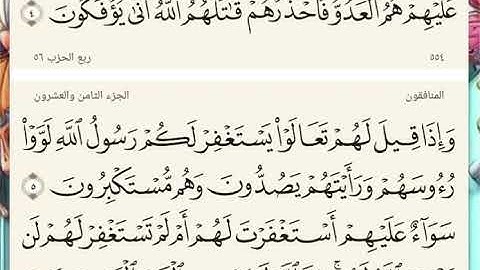 عَلَيۡهِمۡۚ هُمُ ٱلۡعَدُوُّ فَٱحۡذَرۡهُمۡۚ قَٰتَلَهُمُ ٱللَّهُۖ أَنَّىٰ يُؤۡفَكُونَ ٤
٥٥٤ ربع الحزب ٥٦
المنافقون الجزء الثامن والعشرون
وَإِذَا قِيلَ لَهُمۡ تَعَالَوۡاْ يَسۡتَغۡفِرۡ لَكُمۡ رَسُولُ ٱللَّهِ لَوَّوۡاْ
رُءُوسَهُمۡ وَرَأَيۡتَهُمۡ يَصُدُّونَ وَهُم مُّسۡتَكۡبِرُونَ ٥
سَوَآءٌ عَلَيۡهِمۡ أَسۡتَغۡفَرۡتَ لَهُمۡ أَمۡ لَمۡ تَسۡتَغۡفِرۡ لَهُمۡ لَن